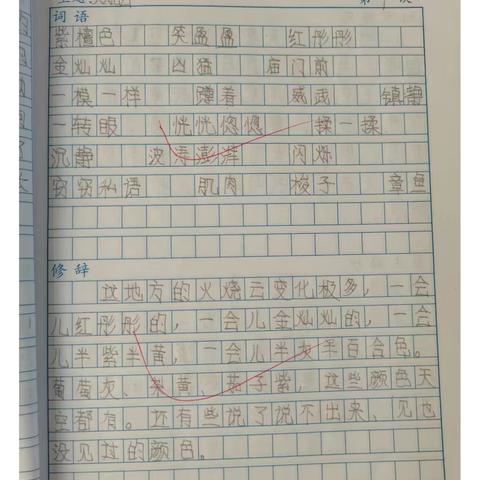 词语
紫檀色 笑盈盈 红彤彤
金灿灿 凶猛 庙门前
一模一样 蹲着 威武 镇静
一转眼 恍恍惚惚 揉一揉
沉静 波涛澎湃 闪烁
窃窃私语 肌肉 梭子 章鱼
修辞
这地方的火烧云变化极多，一会
儿红彤彤的，一会儿金灿灿的，一会
儿半紫半黄，一会儿半灰半百合色。
葡萄灰、梨黄、茄子紫，这些颜色天
空都有。还有些说了说不出来、见也
没见过的颜色。